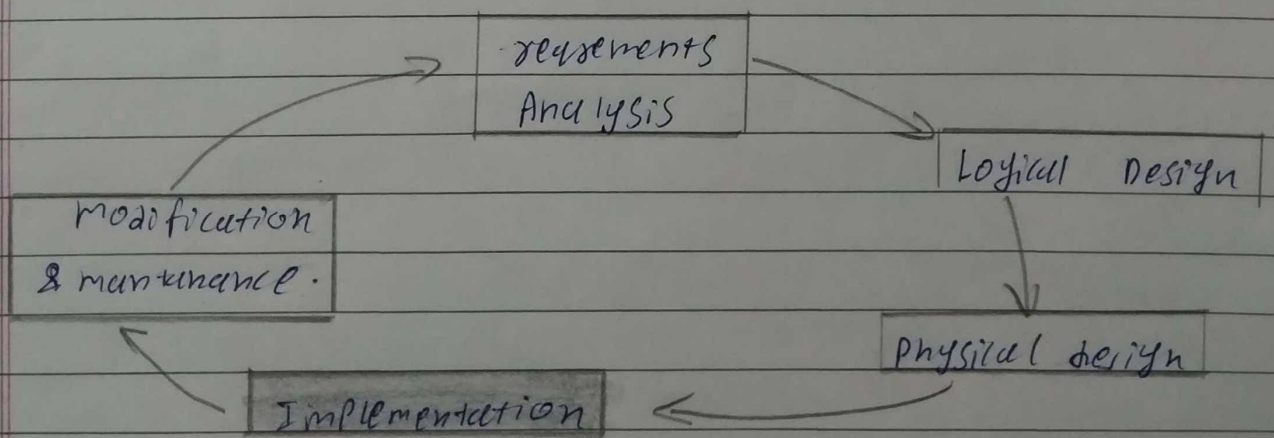 requrements
Analysis
Logical Design
physical design
Implementation
modification
& mantenance.